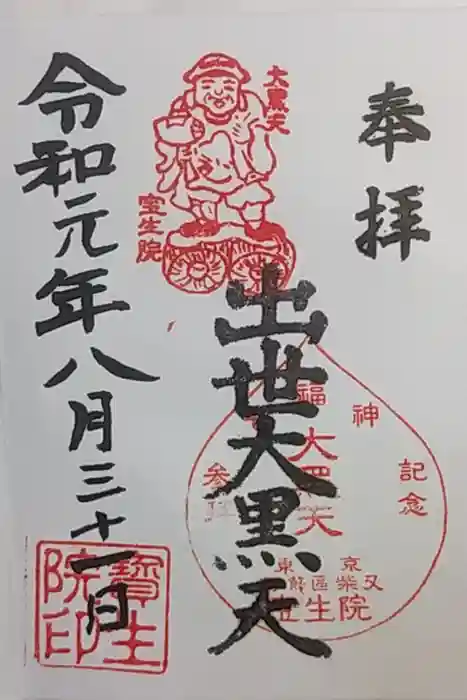 奉拝
大黒天
宝生院
出世大黒天
福神記念
大黒天
参拝
東京
葛飾區柴又
宝生院
令和元年八月三十一日
寶生院印